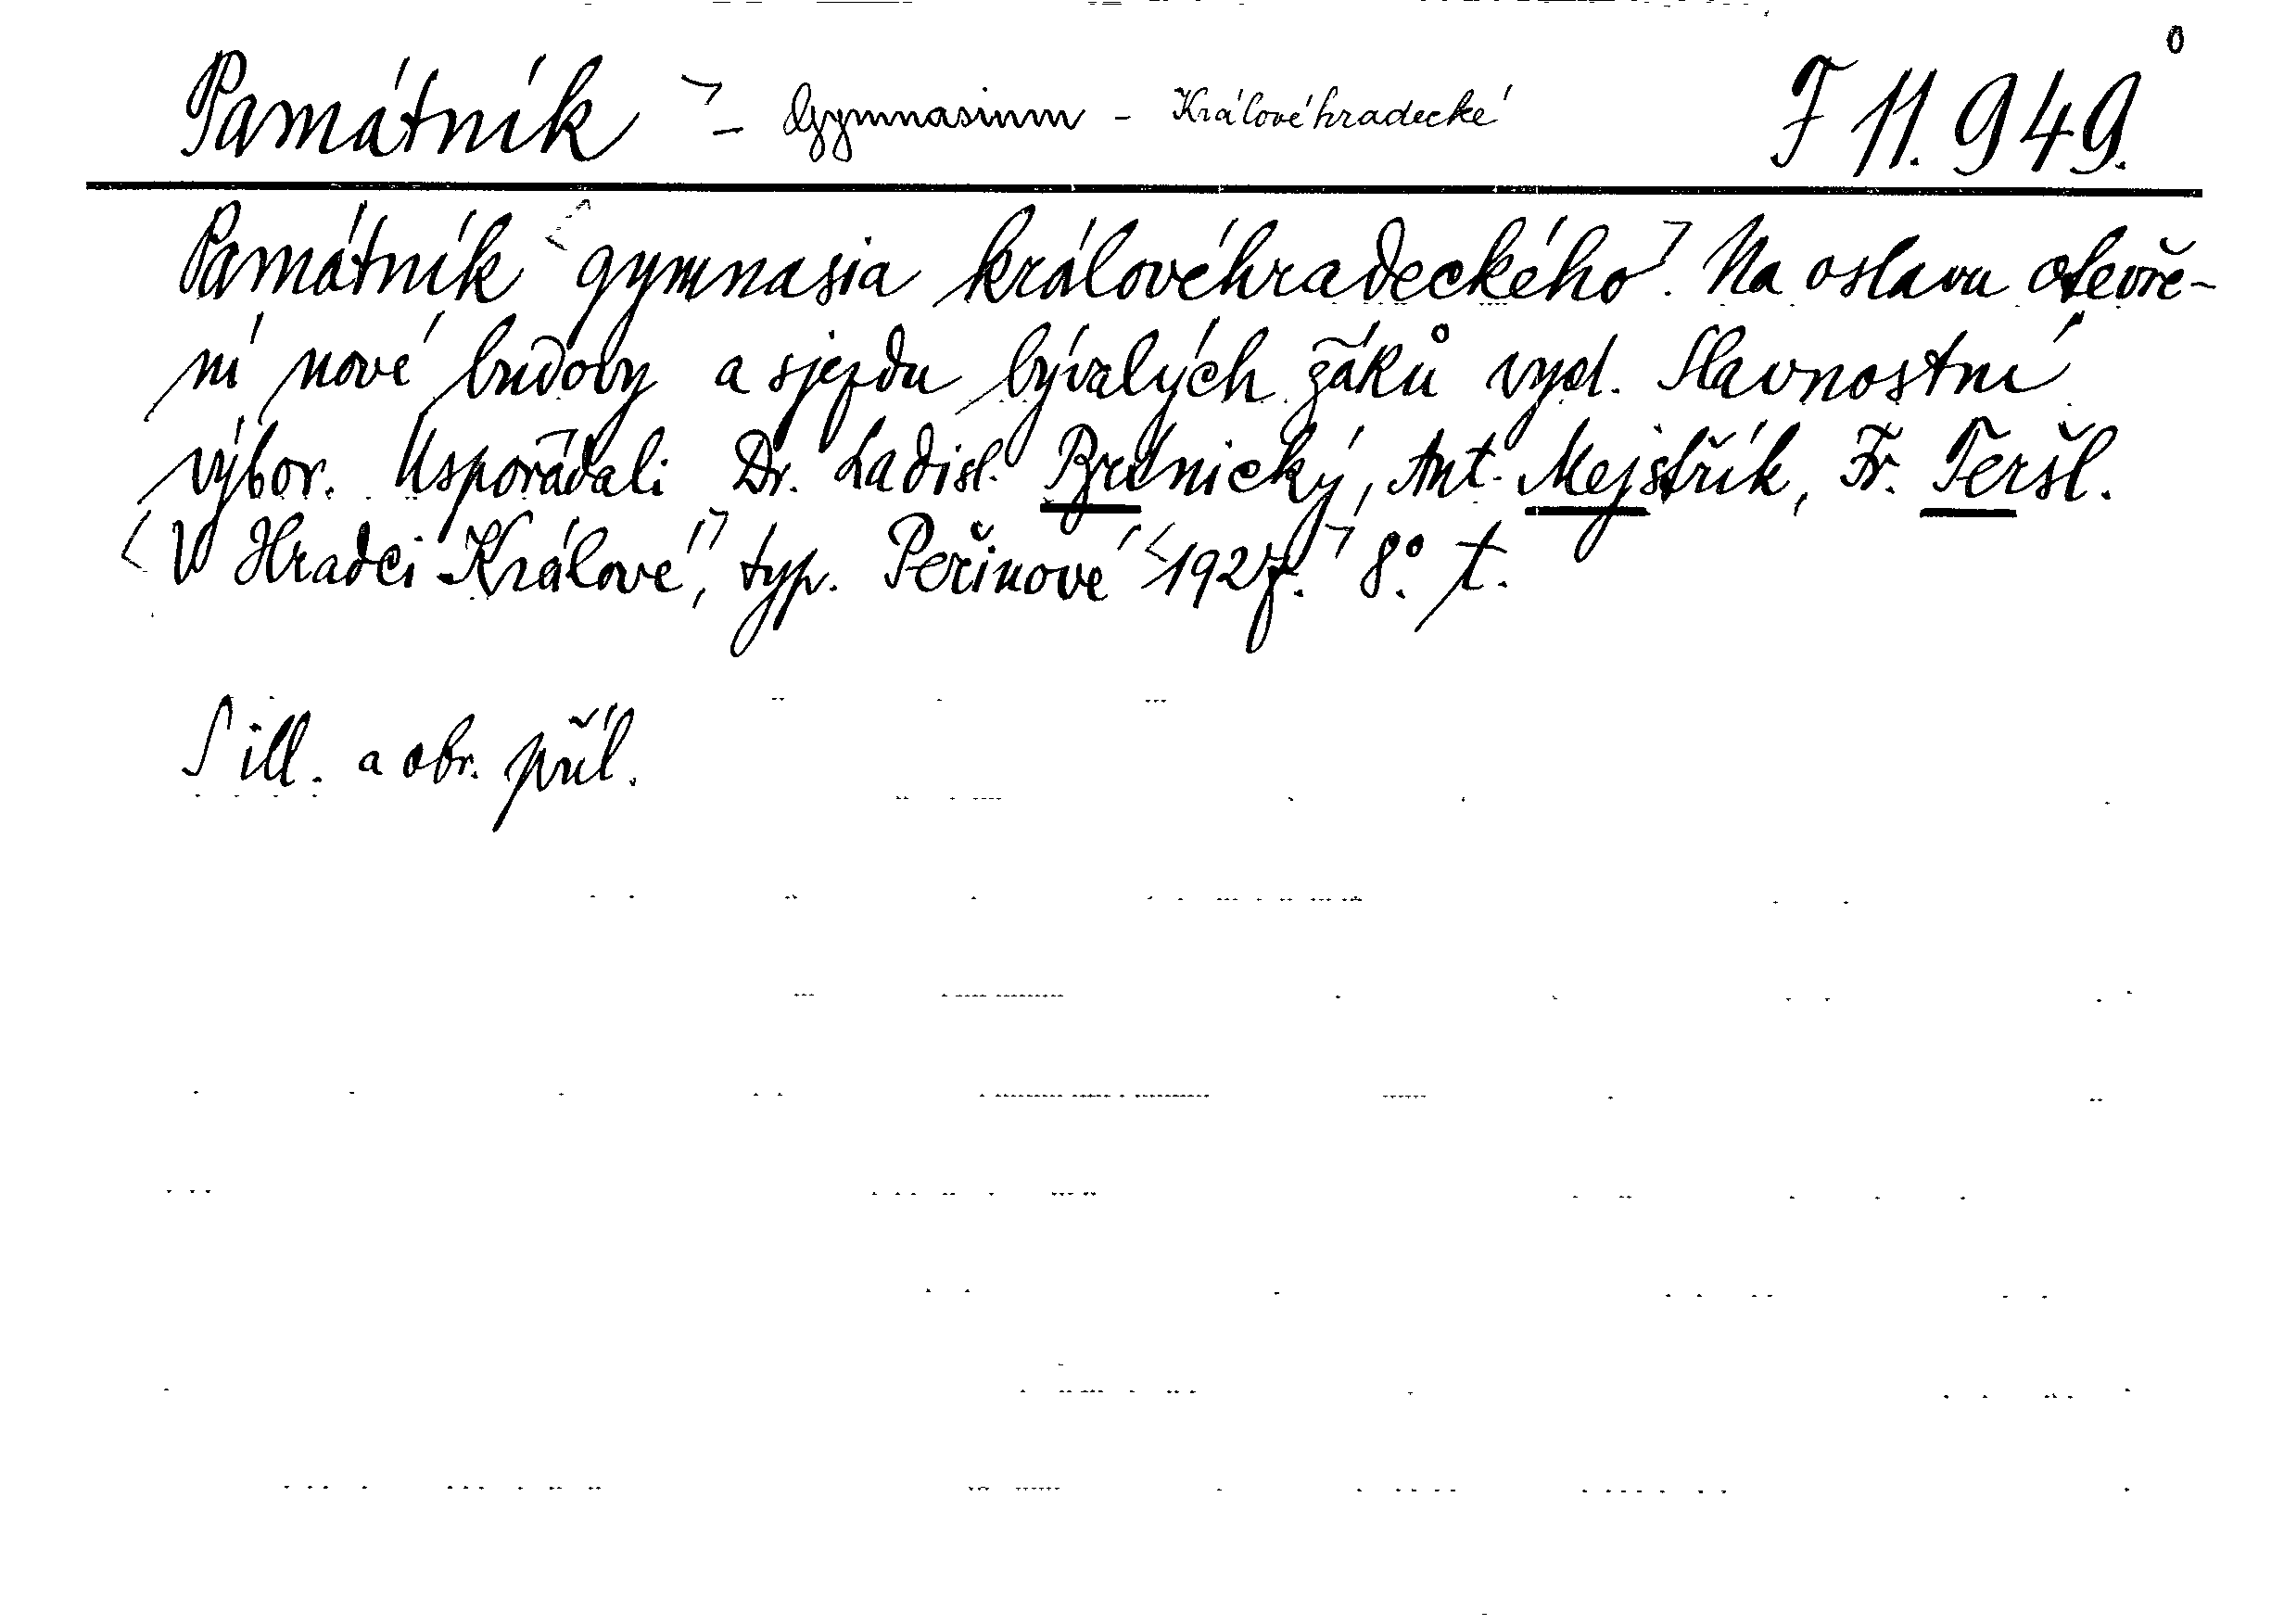 Památník - Gymnasium - Královéhradecké F 11.949.
Památník gymnasia královéhradeckého. Na oslavu otevře-
ní nové budovy a sjezdu bývalých žáků vyd. Slavnostní
výbor. Uspořádali Dr. Ladisl. Brdnický, Ant. Mejstřík, Fr. Teršl.
V Hradci Králové, typ. Peřinové 1927. 8° t.
S ill. a obr. příl.